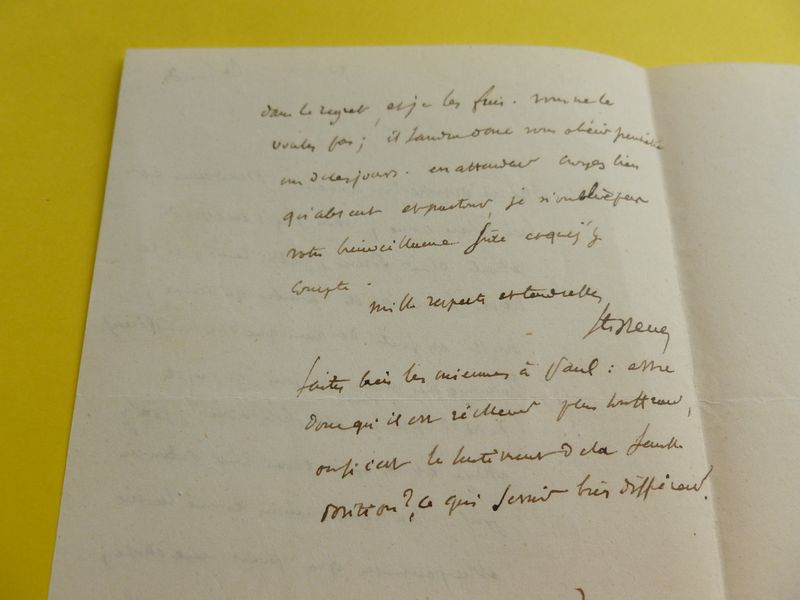 dans le regret, et je les fuis. vous ne le
voulez pas; il faudra donc vous obéir
un de ces jours. en attendant croyez bien
qu'absent et partout, je n'oublie pas
votre bienveillance et que j'y
compte.
mille respects et tendresses
Ste Beuve
faites bien les miennes à Paul: est-ce
donc qu'il est réellement plus souffrant,
ou si c'est le sentiment de la
position? ce qui serait bien différent.